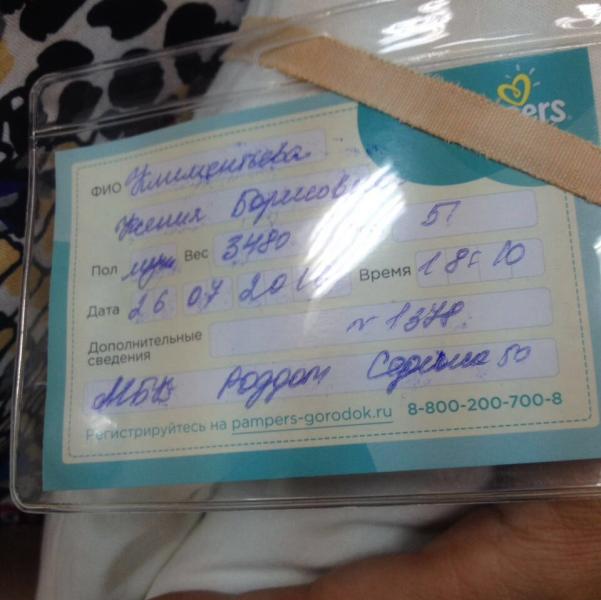 pers
ФИО Климентьева
Ксения Борисовна
Пол муж Вес 3480 51
Дата 26 07 20 Время 18 10
Дополнительные
сведения N 1378
Роддом 50
Регистрируйтесь на pampers-gorodok.ru 8-800-200-700-8